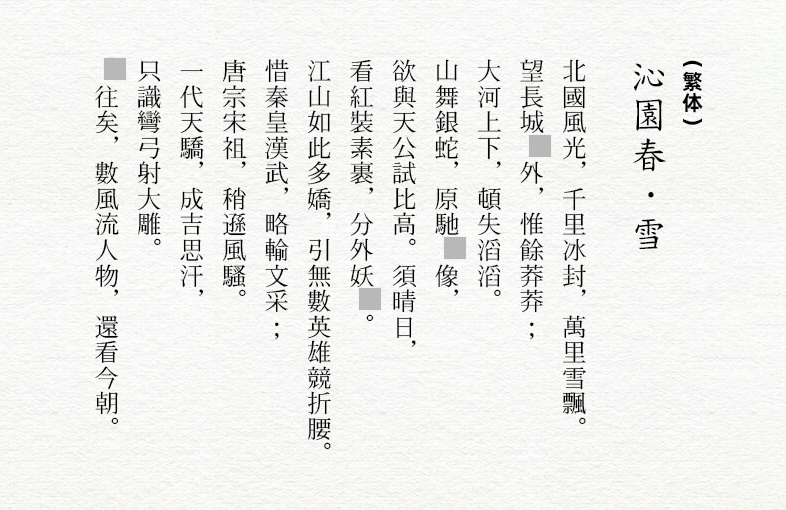 (繁体)
沁園春·雪
北國風光，千里冰封，萬里雪飄。
望長城外，惟餘莽莽；
大河上下，頓失滔滔。
山舞銀蛇，原馳像，
欲與天公試比高。須晴日，
看紅裝素裹，分外妖。
江山如此多嬌，引無數英雄競折腰。
惜秦皇漢武，略輸文采；
唐宗宋祖，稍遜風騷。
一代天驕，成吉思汗，
只識彎弓射大雕。
往矣，數風流人物，還看今朝。